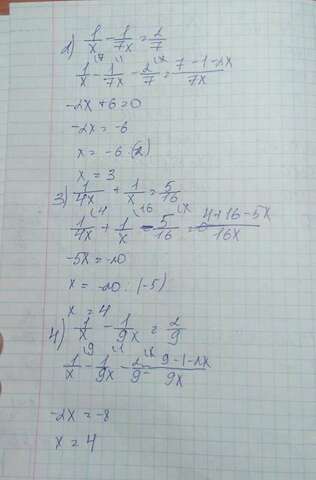 2) 1/x - 1/7x = 2/7
1/x \7 - 1/7x \1 - 2/7 \x = 7-1-2x/7x
-2x+6=0
-2x=-6
x=-6:(2)
x=3
3) 1/4x + 1/x = 5/16
1/4x \4 + 1/x \16 - 5/16 \x = 4+16-5x/16x
-5x=-20
x=-20:(-5)
x=4
4) 1/x - 1/9x = 2/9
1/x \9 - 1/9x \1 - 2/9 \x = 9-1-2x/9x
-2x=-8
x=4